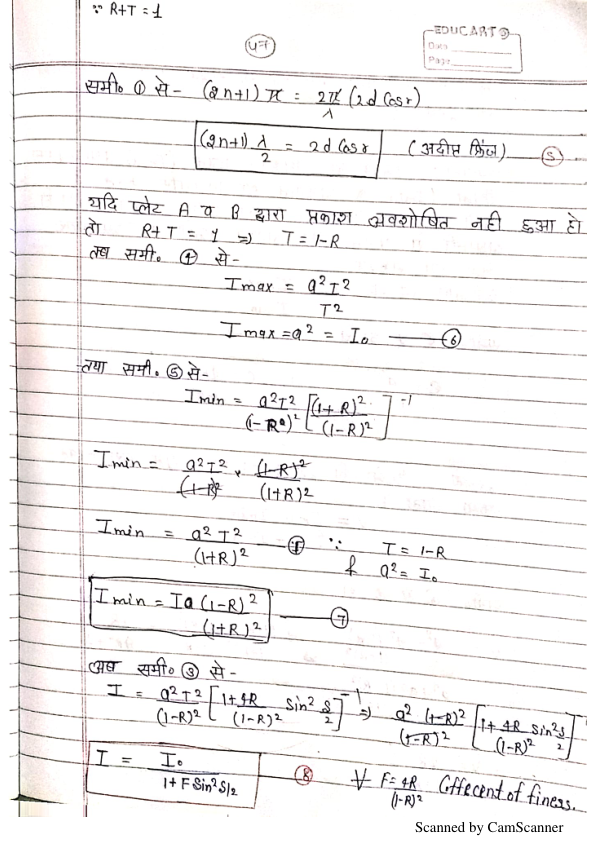 ∵ R+T = 1
47
EDUCART
Date
Page
समी० ① से - (2n+1) π = 2π/λ (2d Cosr)
(2n+1) λ/2 = 2d Cosr (अदीप्त फ्रिंज) ⑤
यदि प्लेट A व B द्वारा प्रकाश अवशोषित नही हुआ हो
तो R+T = 1 ⇒ T = 1-R
तब समी. ④ से -
Imax = a²T²/T²
Imax = a² = I₀ ⑥
तथा समी. ⑤ से-
Imin = a²T²/(1-R)² [(1+R)²/(1-R)²]⁻¹
Imin = a²T²/(1-R)² × (1-R)²/(1+R)²
Imin = a²T²/(1+R)² ∵ T = 1-R
& a² = I₀
Imin = I₀ (1-R)²/(1+R)² ⑦
अब समी० ③ से -
I = a²T²/(1-R)² [1+ 4R/(1-R)² Sin² S/2]⁻¹ ⇒ a² (1-R)²/(1-R)² [1+ 4R/(1-R)² Sin² S/2]
I = I₀/1+F Sin² S/2 ⑧ F = 4R/(1-R)² Cofficent of finess.
Scanned by CamScanner